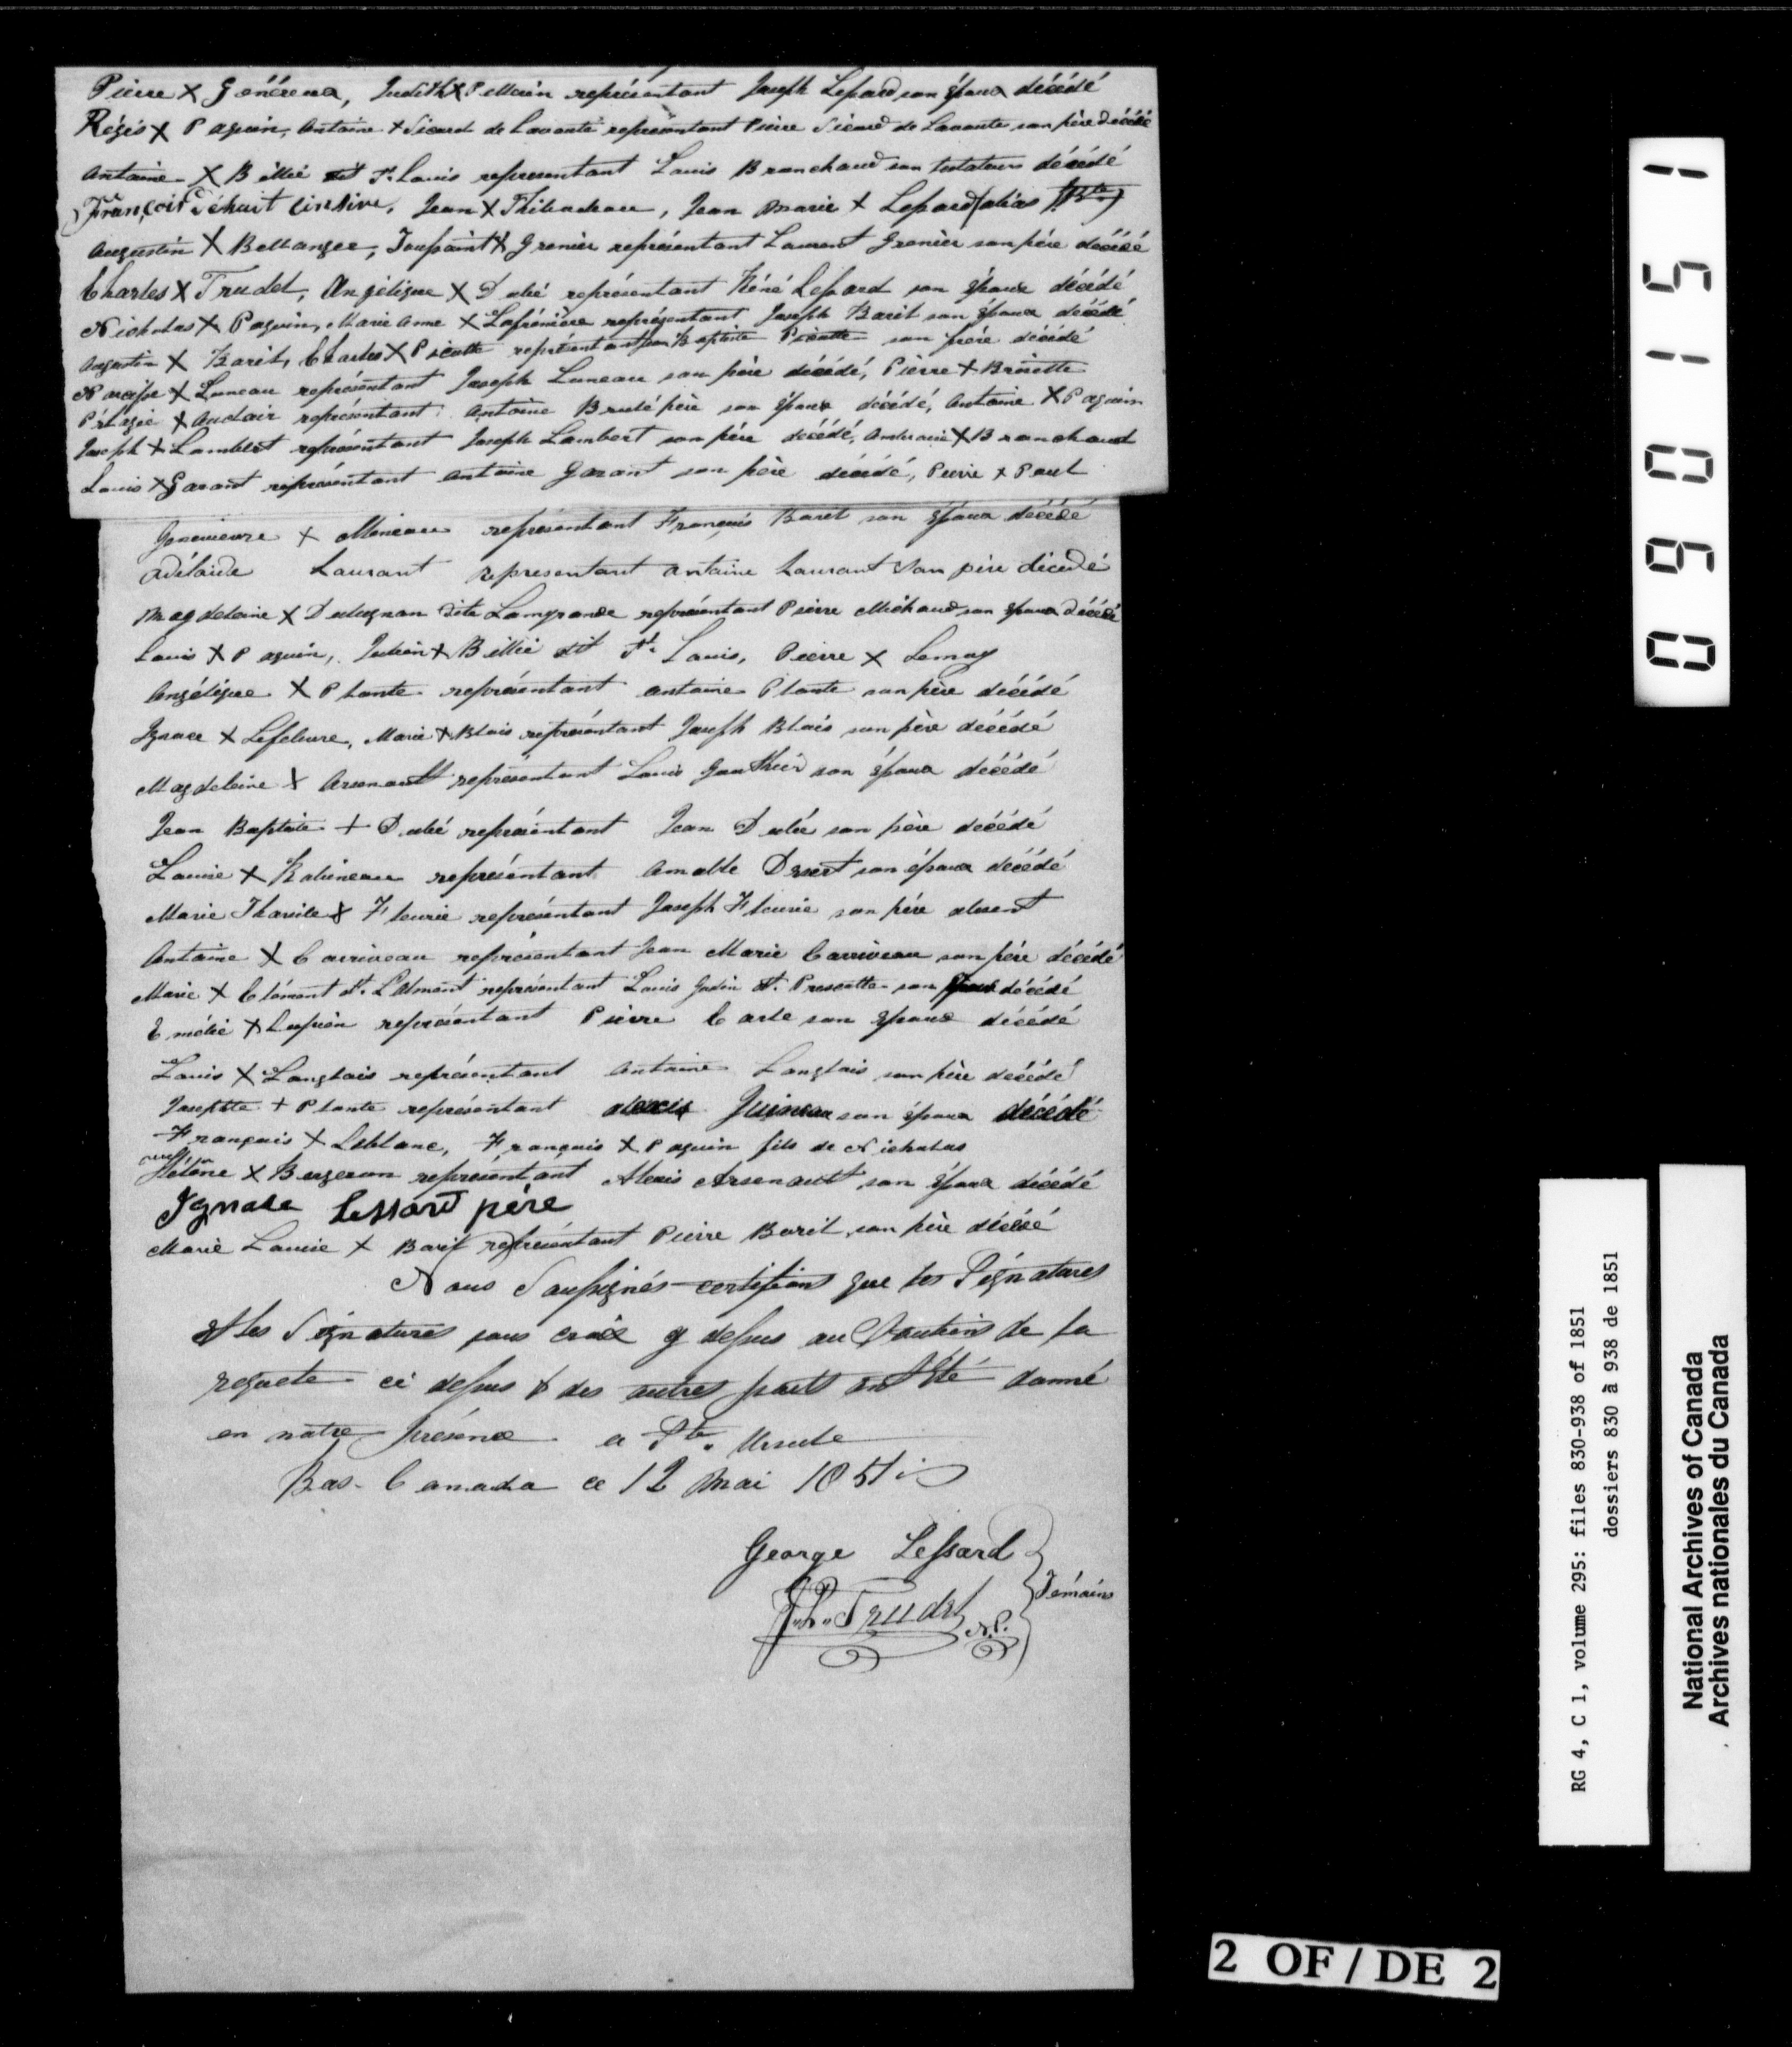 Pierre X Généreux, Judith X Pellerin représentant Joseph Lessard son époux décédé
Régis X Paquin, Antoine X Sicard de Lavante représentant Pierre Sicard de Lavante son père décédé
Antoine X Billié dit St. Louis representant Louis Branchaud son tutateur décédé
François X Thibaudeau, Jean Marie X Lessard (alias
Augustin X Bellanger, Toussaint X Grenier représentant Laurent Grenier son père décédé
Charles X Trudel, Angélique X Dubé représentant Réné Lessard son époux décédé
Nicholas X Paquin, Marie Anne X Lafrénière représentant Joseph Baril son époux décédé
Augustin X Baril, Charles X Picotte représentant Jean Baptiste Picotte son frère décédé
Narcisse X Luneau représentant Joseph Luneau son père décédé, Pierre X Brisette
Pélagie X Auclair représentant Antoine Brulé père son époux décédé, Antoine X Paquin
Joseph X Lambert représentant Joseph Lambert son père décédé, Ambroise X Branchaud
Louis X Garant représentant Antoine Garant son père décédé, Pierre X Paul
Genevieve X Mineau représentant François Baril son époux décédé
Adélaide Laurant representant Antoine Laurant son père décédé
Magdeleine X dite Langrande représentant Pierre Michaud son époux décédé
Louis X Paquin, Julien X Billié dit St. Louis, Pierre X Lemay
Angélique X Plante représentant Antoine Plante son père décédé
Ignace X Lefebvre, Marie X Blais représentant Joseph Blais son père décédé
Magdeleine X Arsenault représentant Louis Gauthier son époux décédé
Jean Baptiste X Dubé représentant Jean Dubé son père décédé
Louise X Rabineau représentant Amable son époux décédé
Marie Tharsile X Fleurie représentant Joseph Fleurie son père absent
Antoine X Carriveau représentant Jean Marie Carriveau son père décédé
Marie X Clément représentant Louis son époux décédé
Emélie X Lupien représentant Pierre son époux décédé
Louis X Langlais représentant Antoine Langlais son père décédé
Josephte X Plante représentant Alexis son époux décédé
François X Leblanc, François X Paquin fils de Nicholas
Hélène X Bergeron représentant Alexis Arsenault son époux décédé
Ignace Lessard père
Marie Louise X Baril représentant Pierre Baril son père décédé
Nous Soussignés certifions que les Signatures
et les Signatures sous croix cy dessus au Soutiens de la
requete ci dessus & des autres parts ont été donné
en notre présence a Ste. Ursule
Bas-Canada ce 12 Mai 1851
George Lessard
Trudel N.P.
Témoins
090151
RG 4, C 1, volume 295: files 830-938 of 1851
dossiers 830 à 938 de 1851
National Archives of Canada
Archives nationales du Canada
2 OF / DE 2